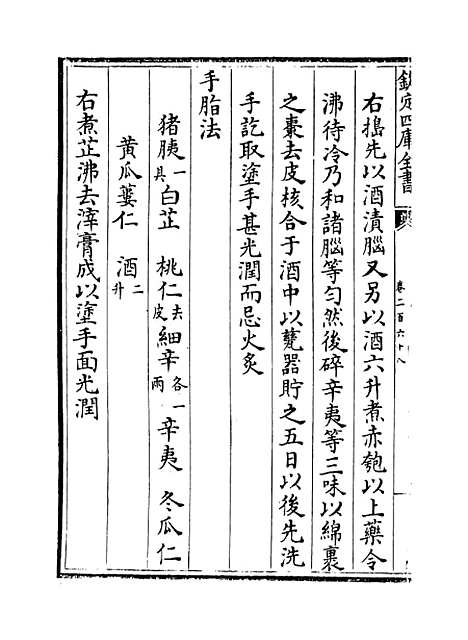 欽定四庫全書
卷二百六十八
右搗先以酒漬腦又另以酒六升煮赤匏以上藥令
沸待冷乃和諸腦等勻然後碎辛夷等三味以綿裹
之棗去皮核合于酒中以甕器貯之五日以後先洗
手訖取塗手甚光潤而忌火炙
手脂法
猪胰一具白芷 桃仁去皮細辛各一兩辛夷 冬瓜仁
黄瓜蔞仁 酒二升
右煮芷沸去滓膏成以塗手面光潤